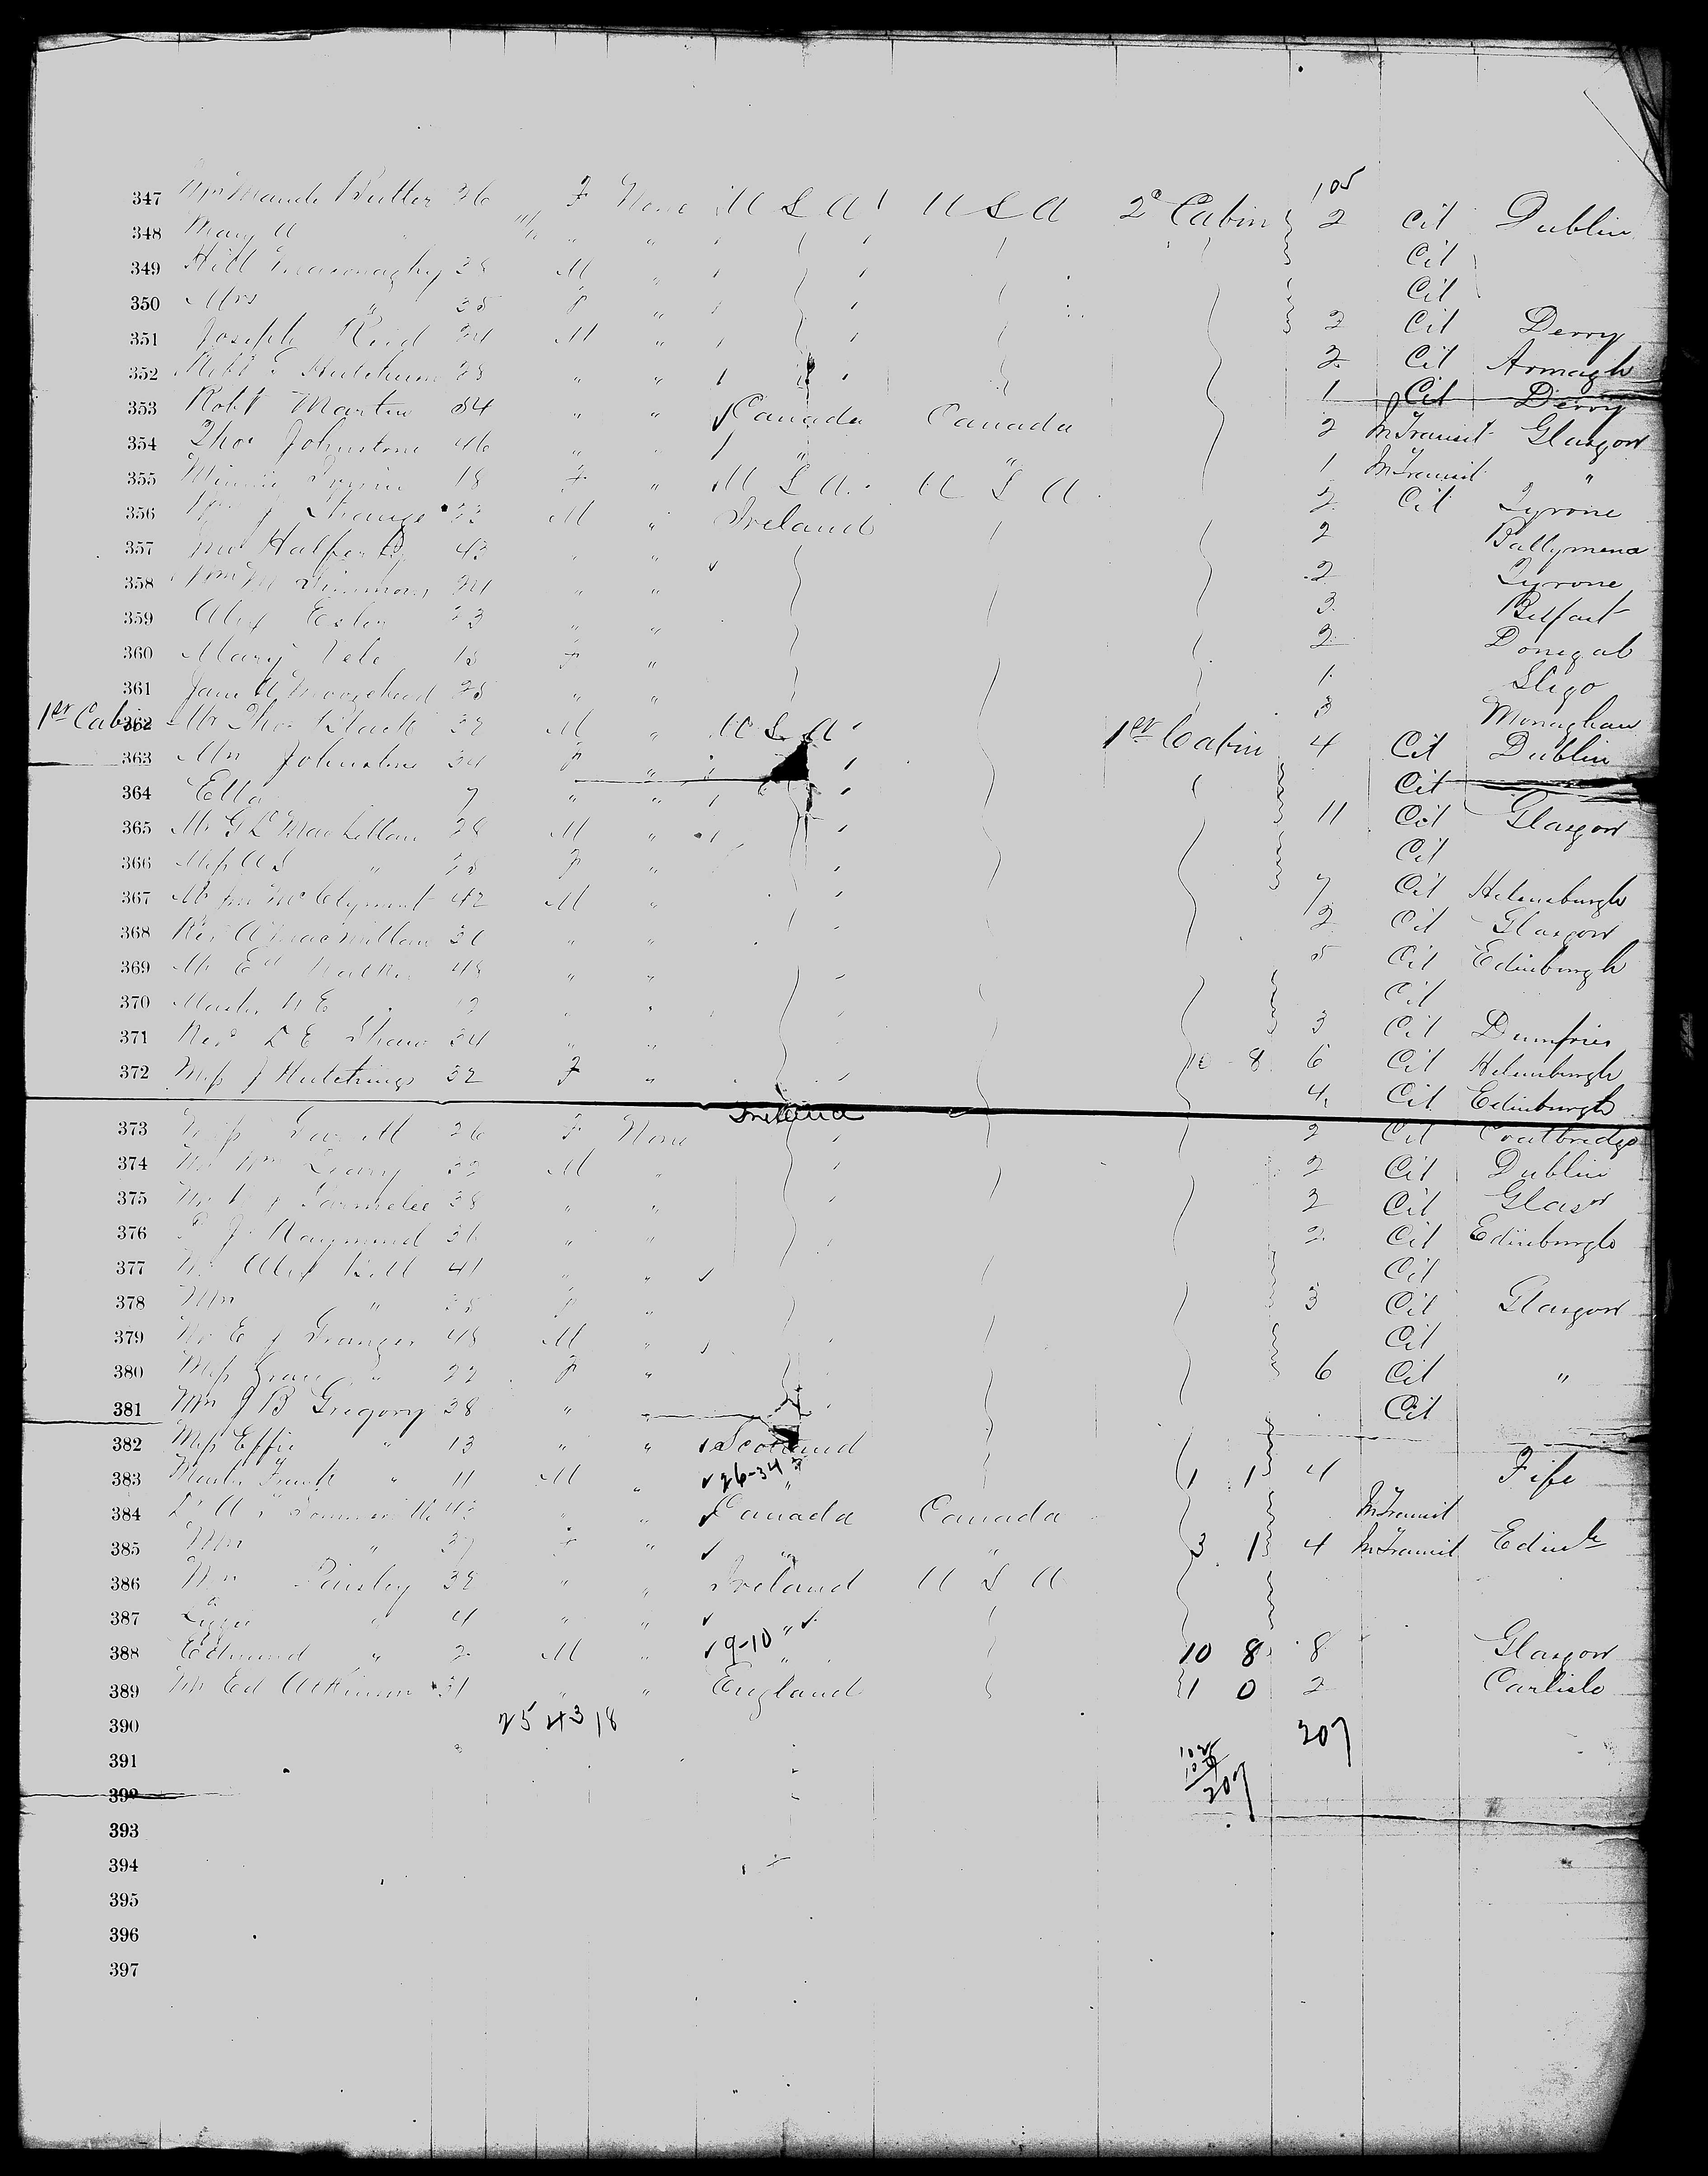 105
347 Mrs Maude Butler 36 F None U S A U S A 2d Cabin 2 Cit Dublin
348 May A 11/12 " " Cit
349 Hill 38 M " Cit
350 Mrs " 35 F " 2 Cit Derry
351 Joseph Reid 24 M " 2 Cit Armagh
352 Robt G 28 " " 1 Cit Derry
353 Robt Martin 54 " " Canada Canada 2 In Transit Glasgow
354 Thos Johnstone 46 " " " " 1 In Transit "
355 Minnie 18 F " U S A U S A 2 Cit Tyrone
356 J Strange 22 M " Ireland 2 Ballymena
357 Halferty 43 " " 2 Tyrone
358 Wm 24 " " 3 Belfast
359 Alex Esler 23 " " 2 Donegal
360 Mary 18 F " 1 Sligo
361 Jane A Moorehead 25 " " 3 Monaghan
1st Cabin 362 Mr Thos Black 32 M " U S A 1st Cabin 4 Cit Dublin
363 Mrs Johnstone 34 F " Cit
364 Etta 7 " " 11 Cit Glasgow
365 Mr G L MacLellan 28 M " Cit
366 Miss A S " 25 F " 7 Cit Helensburgh
367 Mr Jno McClymont 42 M " 2 Cit Glasgow
368 Rev A MacMillan 36 " " 5 Cit Edinburgh
369 Mr Ed Walker 48 " " Cit
370 Master W E 12 " " 3 Cit Dumfries
371 Revd L E Shaw 34 " " 10 - 8 6 Cit Helensburgh
372 Miss J Hutchings 32 F " 4 Cit Edinburgh
Ireland
373 Miss 26 F None 2 Cit Coatbridge
374 Mr Wm Leary 32 M " 2 Cit Dublin
375 Mr Parmelee 38 " " 2 Cit Glasw
376 J Raymond 36 " " 2 Cit Edinburgh
377 Mr Alex Bell 41 " " Cit
378 Mrs " 35 F " 3 Cit Glasgow
379 Mr E J Granger 48 M " Cit
380 Miss Grace " 22 F " 6 Cit "
381 Mrs J B Gregory 38 " " Cit
382 Miss Effie " 13 " " Scotland
383 Master Frank " 11 M " 26-34 " 1 1 4 Fife
384 Dr A 43 " " Canada Canada In Transit
385 Mrs " 37 F " " " 3 1 4 In Transit Edinb
386 Mrs Paisley 32 " " Ireland U S A
387 Lizzie " 4 " "
388 Edmund " 2 M " 9-10 " 10 8 8 Glasgow
389 Mr Ed Atkinson 31 " " England 1 0 2 Carlisle
390 25 43 18 207
391
392 207
393
394
395
396
397